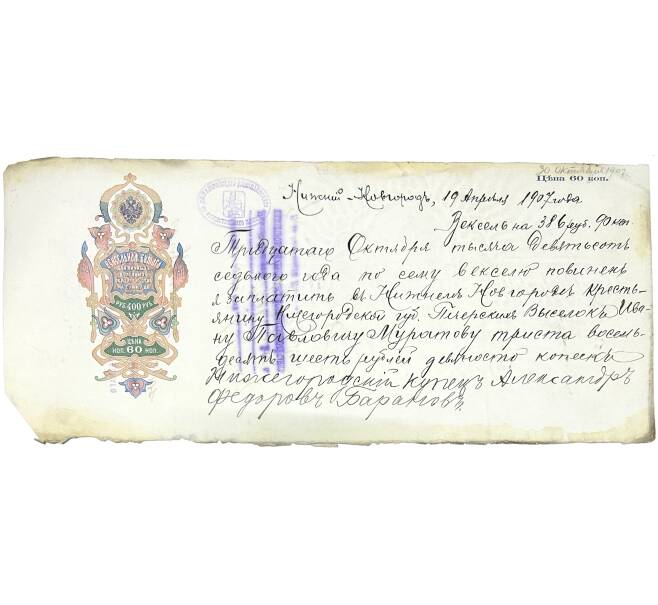 30 Октября 1907
Цѣна 60 коп.
Нижний-Новгородъ, 19 Апреля 1907 года.
Вексель на 386 руб. 90 коп.
Тридцатаго Октября тысяча девятьсот
седьмого года по сему векселю повиненъ
я заплатить въ Нижнемъ Новгородѣ кресть-
янину Нижегородской губ. Печерскихъ Выселокъ Ива-
ну Павловичу Муратову триста восемь-
десятъ шесть рублей девяносто копеекъ
Нижегородскій купецъ Александръ
Федоровъ Барановъ.
ВЕКСЕЛЬНАЯ БУМАГА
РУБ. 400 РУБ.
ЦѢНА
КОП. 60 КОП.